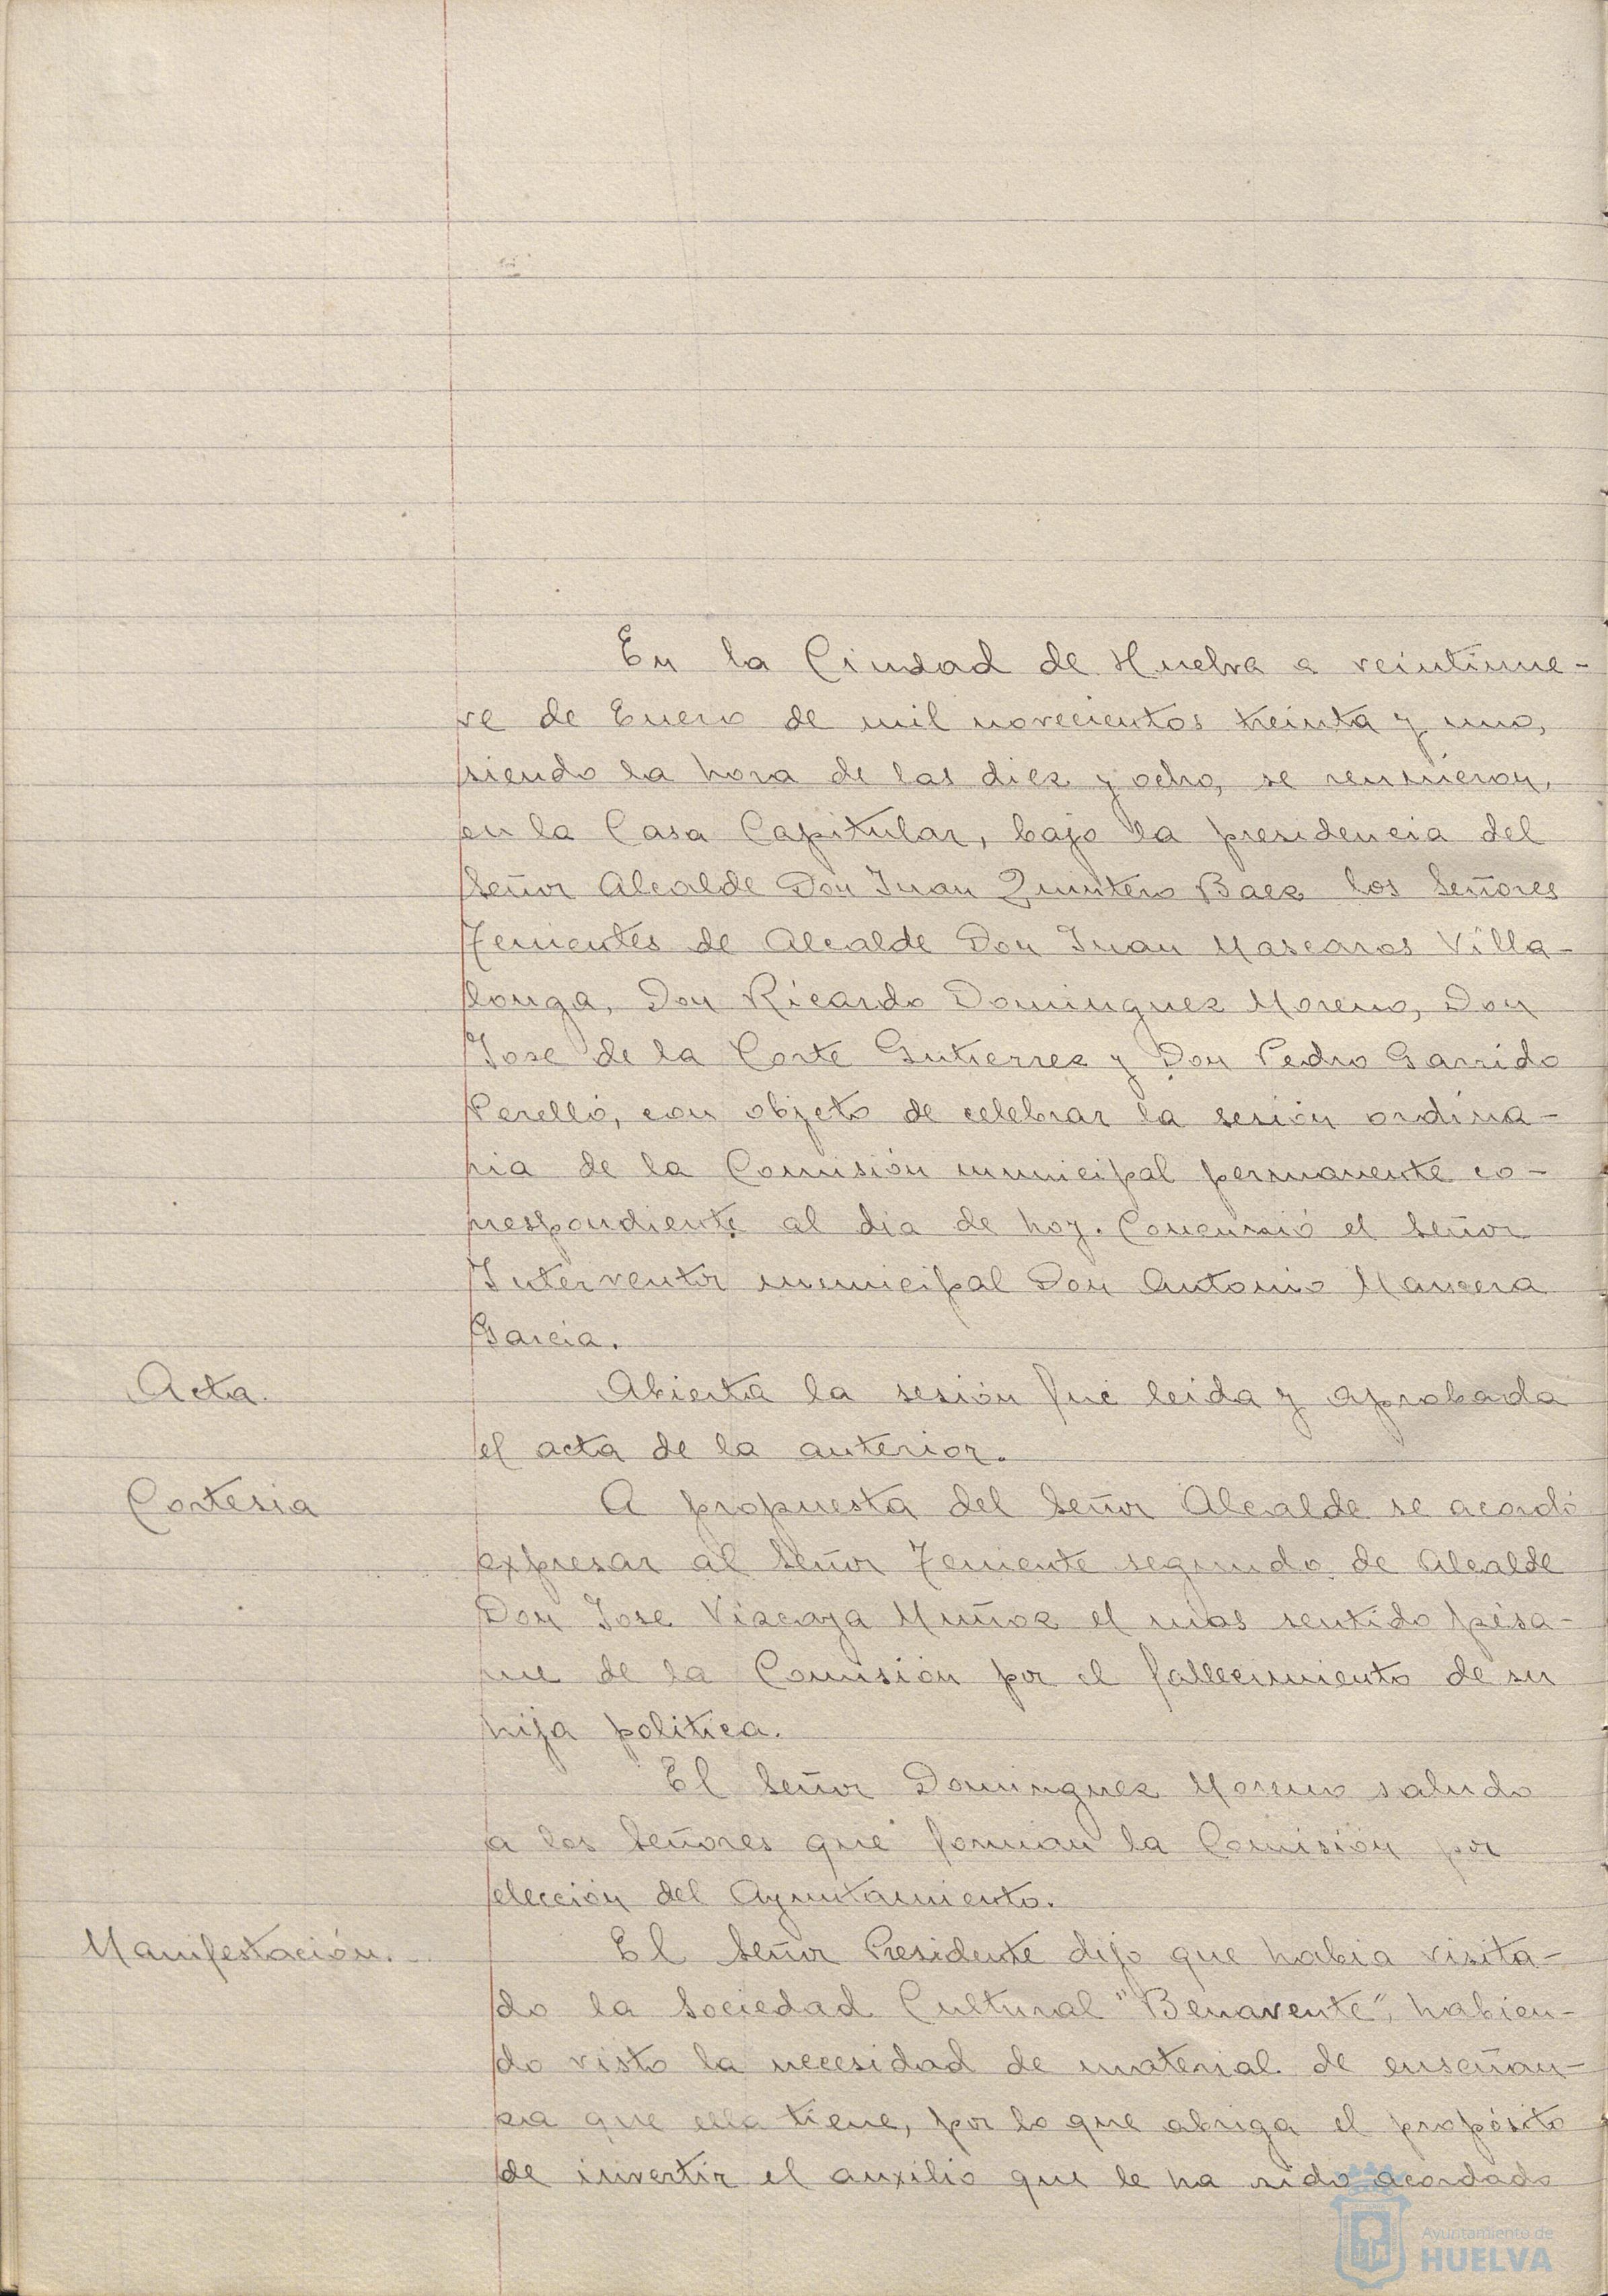 En la Ciudad de Huelva a veintinue-
ve de Enero de mil novecientos treinta y uno,
siendo la hora de las diez y ocho, se reunieron,
en la Casa Capitular, bajo la presidencia del
Señor Alcalde Don Juan Quintero Baez los Señores
Tenientes de Alcalde Don Juan Mascaros Villa-
longa, Don Ricardo Dominguez Moreno, Don
Jose de la Corte Gutierrez y Don Pedro Garrido
Perelló, con objeto de celebrar la sesión ordina-
ria de la Comisión municipal permanente co-
rrespondiente al dia de hoy. Concurrió el Señor
Interventor municipal Don Antonio Mancera
Garcia.
Acta.
Abierta la sesión fué leida y aprobada
el acta de la anterior.
Cortesia
A propuesta del Señor Alcalde se acordó
expresar al Señor Teniente segundo de Alcalde
Don Jose Vizcaya Muñoz el mas sentido pésa-
me de la Comisión por el fallecimiento de su
hija politica.
El Señor Dominguez Moreno saludo
a los Señores que forman la Comisión por
elección del Ayuntamiento.
Manifestación.
El Señor Presidente dijo que habia visita-
do la Sociedad Cultural "Benavente", habien-
do visto la necesidad de material de enseñan-
za que ella tiene, por lo que abriga el propósito
de invertir el auxilio que le ha sido acordado
Ayuntamiento de
HUELVA